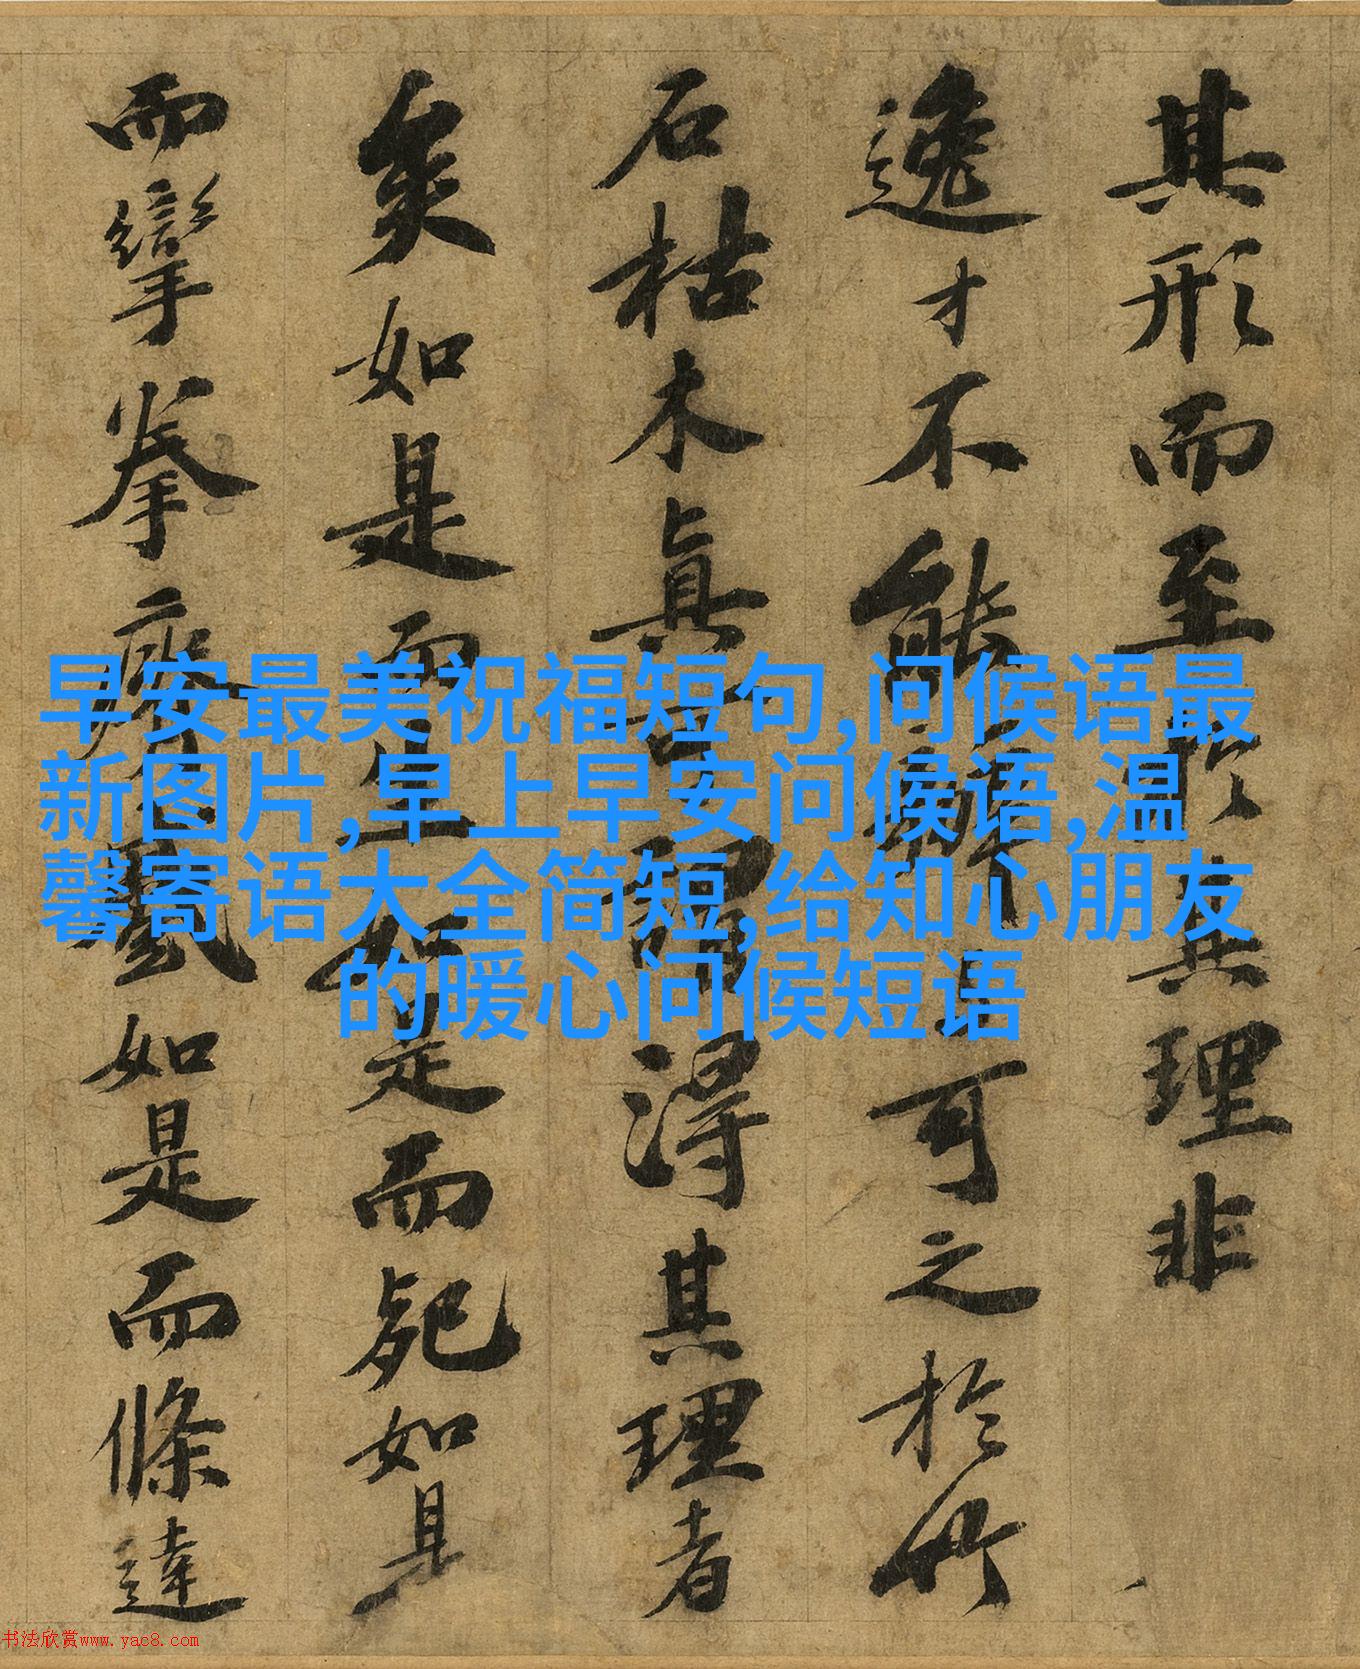 其形而至於其理非
逸才不能之於竹
石枯木真可謂得其理者
矣如是而生如是而死如是
而攣拳瘠蹙如是而條達
早安最美祝福短句,问候语最
新图片,早上早安问候语,温
馨寄语大全简短,给知心朋友
的暖心问候短语
书法欣赏www.yac8.com